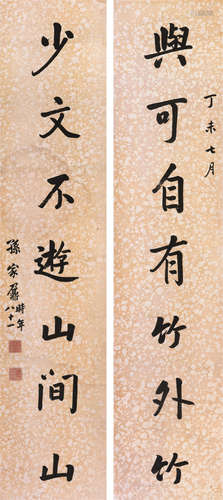 與可自有竹外竹
丁未七月
少文不遊山間山
孫家鼐時年八十一